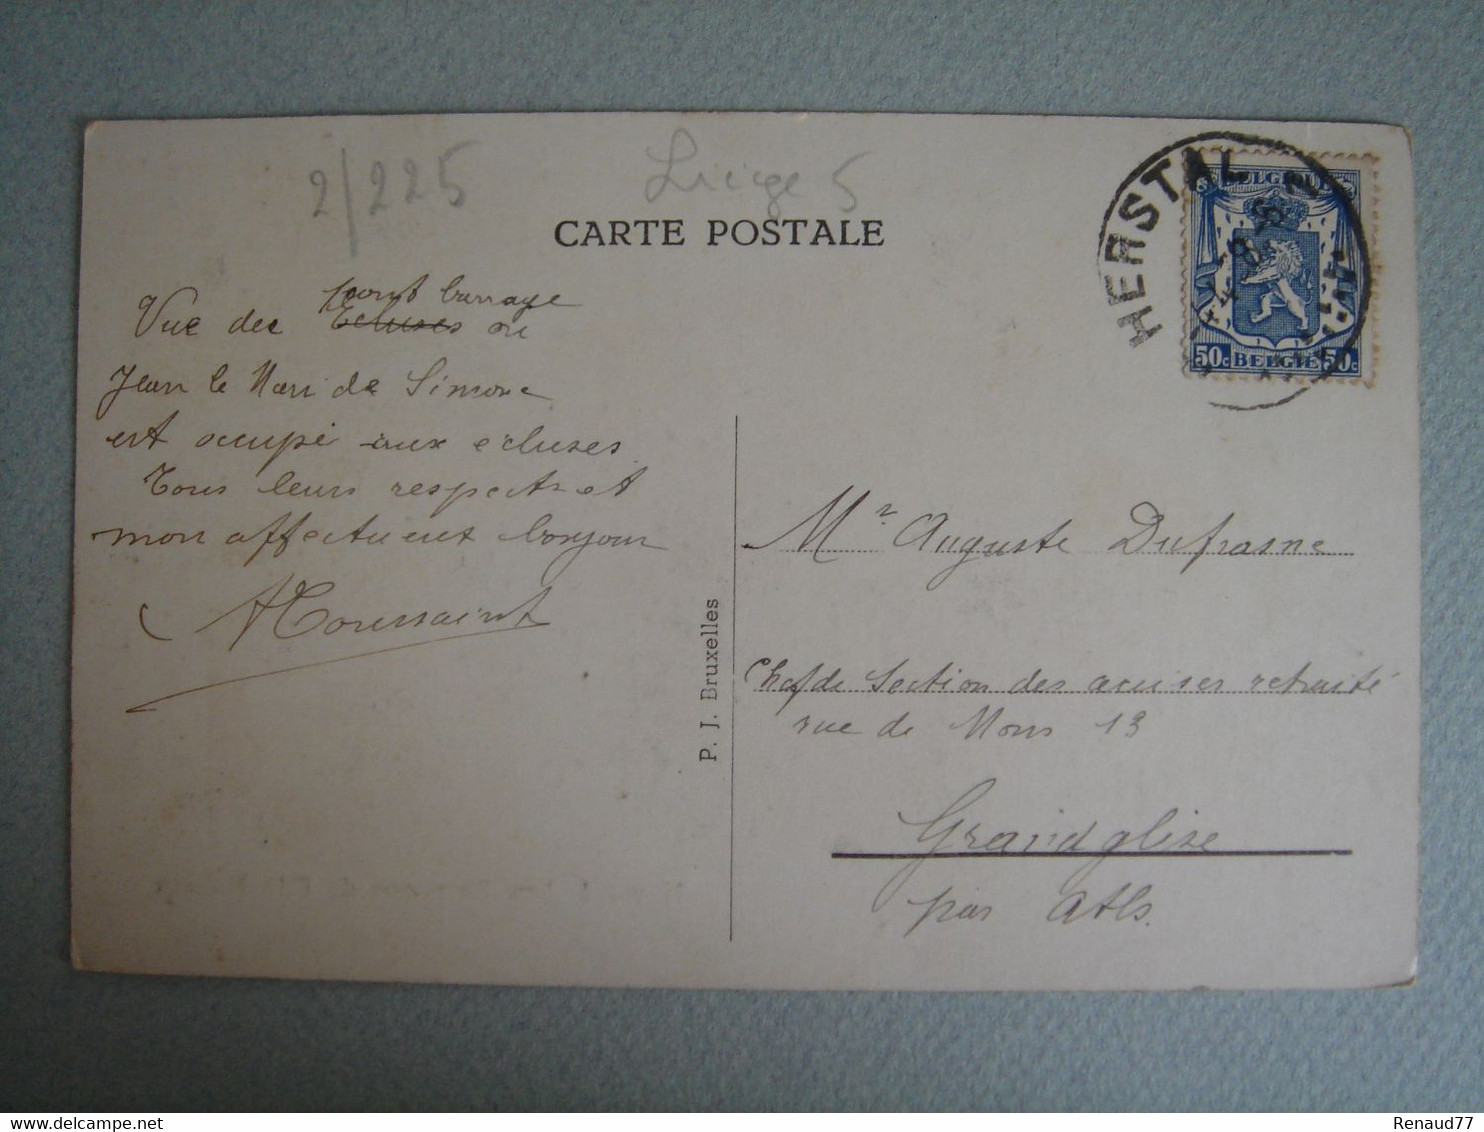 2/225
Liége 5
CARTE POSTALE
HERSTAL
BELGIQUE
50c BELGIË 50c
pont barrage
Vue des Ecluses où
Jean le Mari de Simone
est occupé aux écluses
Tous leurs respects et
mon affectueux bonjour
Toussaint
P. J. Bruxelles
Mr Auguste Dufrasne
Chef de Section des accises retraité
rue de Mons 13
Grandglise
par Ath.
Renaud77